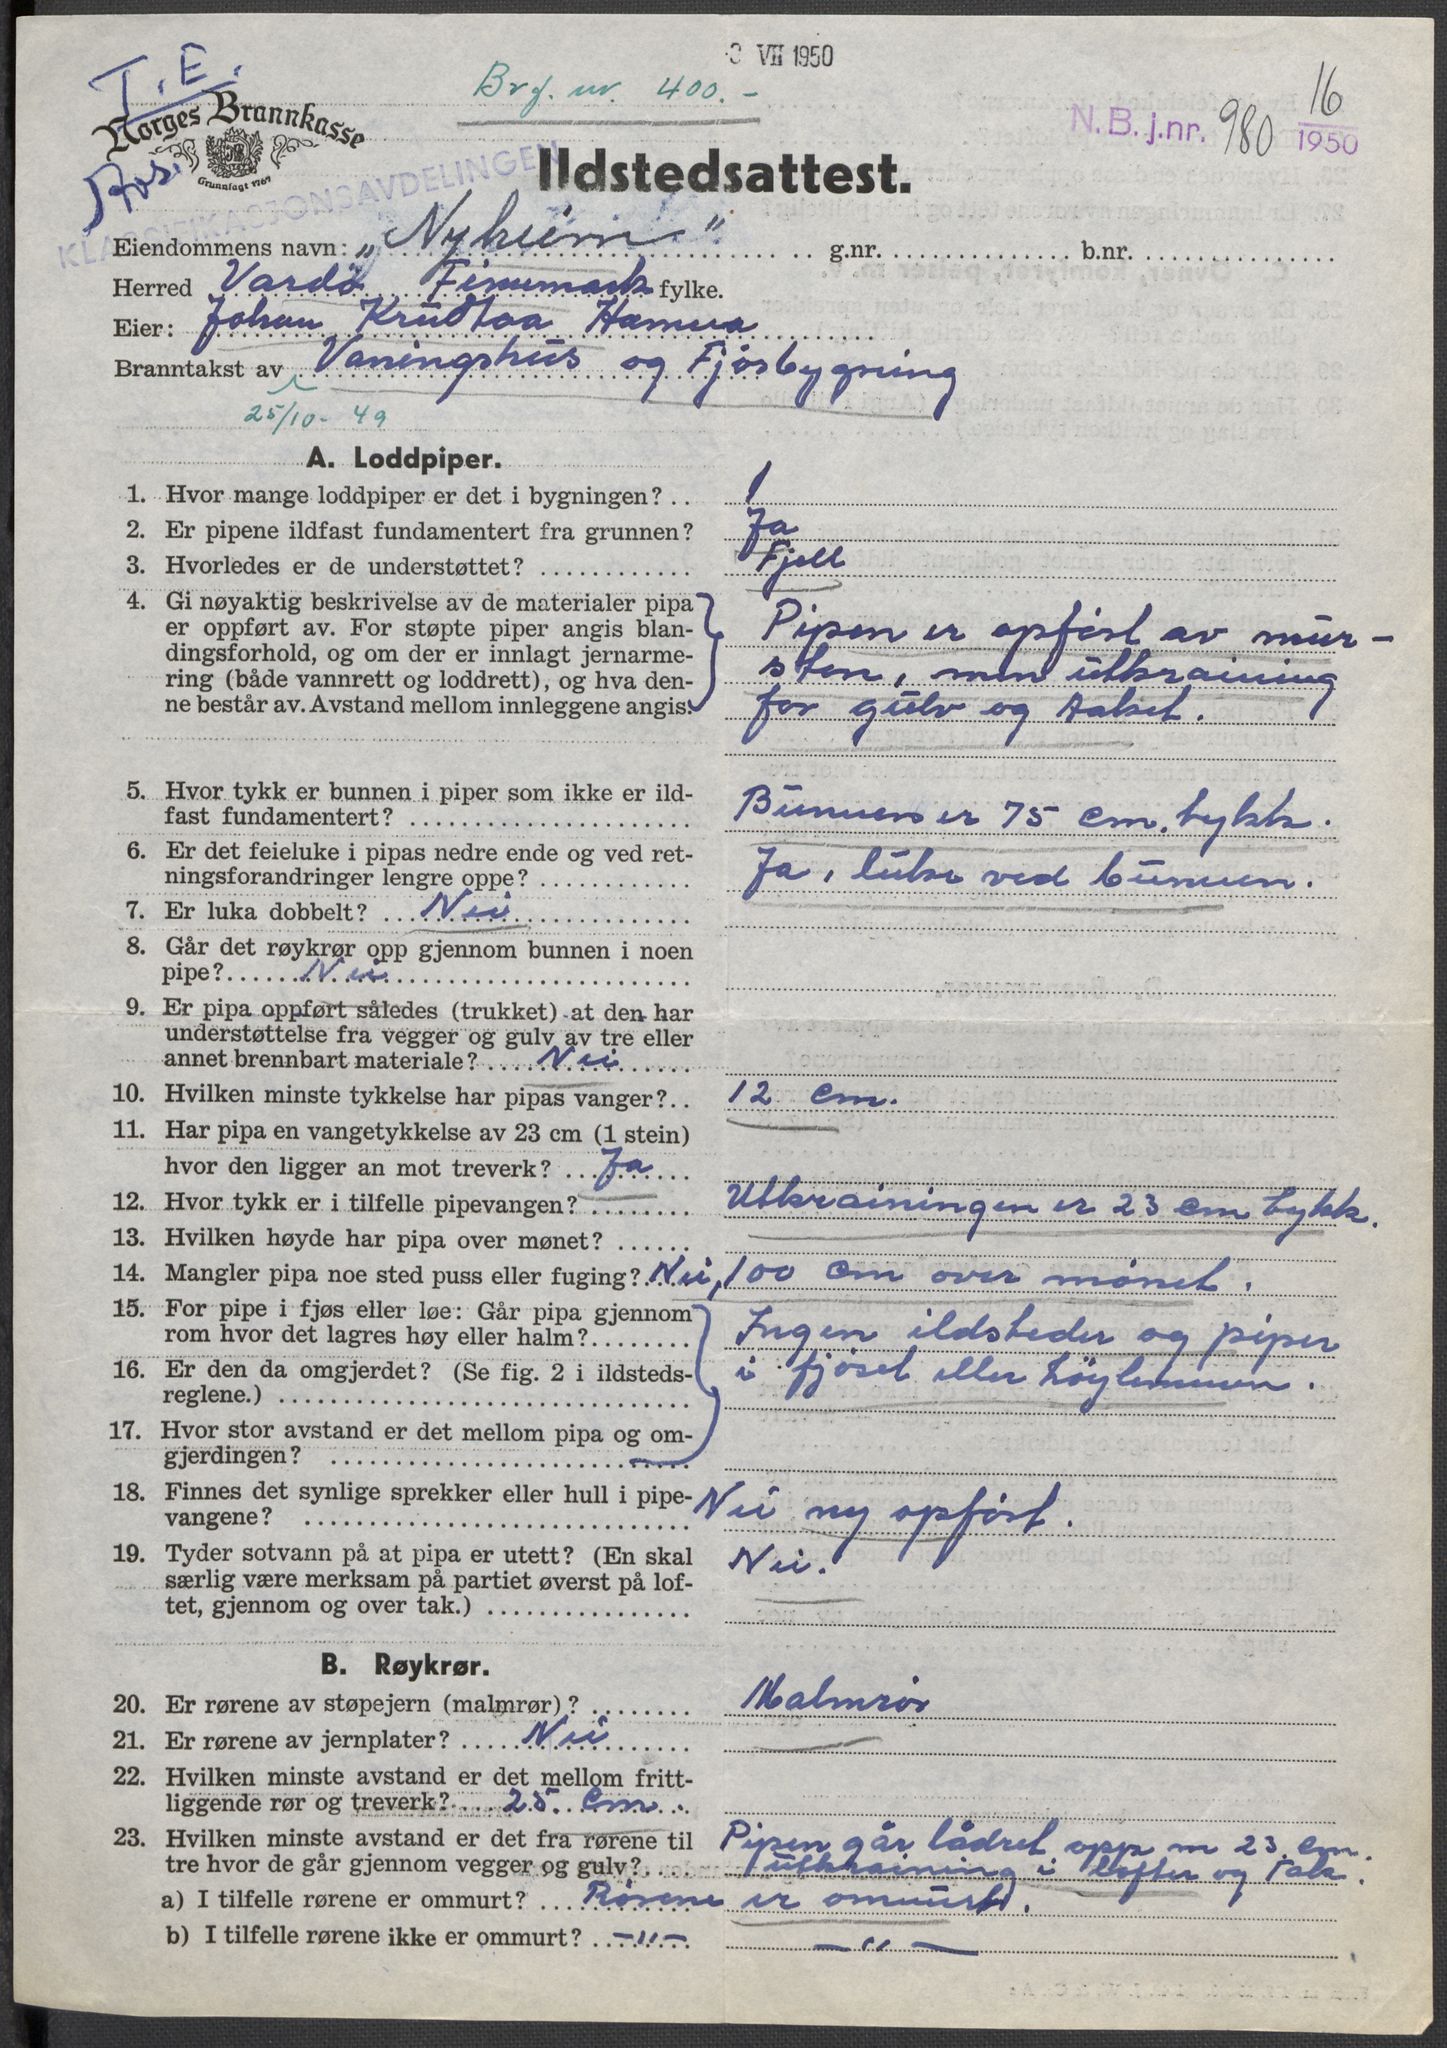 3 VII 1950
T.E.
Brf. nr. 400.-
16
N.B. j.nr. 980 1950
Norges Brannkasse
Grunnlagt 1767
KLASSIFIKASJONSAVDELINGEN
Ildstedsattest.
Eiendommens navn: „Nyheim" g.nr. b.nr.
Herred Vardø Finnmark fylke.
Eier: Johan
Branntakst av Vaningshus og Fjøsbygning
25/10-49
A. Loddpiper.
1. Hvor mange loddpiper er det i bygningen? 1
2. Er pipene ildfast fundamentert fra grunnen? Ja
3. Hvorledes er de understøttet? Fjell
4. Gi nøyaktig beskrivelse av de materialer pipa
er oppført av. For støpte piper angis blan-
dingsforhold, og om der er innlagt jernarme-
ring (både vannrett og loddrett), og hva den-
ne består av. Avstand mellom innleggene angis.
Pipen er opført av mur-
sten, men utkraining
for gulv og taket.
5. Hvor tykk er bunnen i piper som ikke er ild-
fast fundamentert? Bunnen er 75 cm. tykk.
6. Er det feieluke i pipas nedre ende og ved ret-
ningsforandringer lengre oppe? Ja, luke ved bunnen.
7. Er luka dobbelt? Nei
8. Går det røykrør opp gjennom bunnen i noen
pipe? Nei
9. Er pipa oppført således (trukket) at den har
understøttelse fra vegger og gulv av tre eller
annet brennbart materiale? Nei
10. Hvilken minste tykkelse har pipas vanger? 12 cm.
11. Har pipa en vangetykkelse av 23 cm (1 stein)
hvor den ligger an mot treverk? Ja
12. Hvor tykk er i tilfelle pipevangen? Utkrainingen er 23 cm tykk.
13. Hvilken høyde har pipa over mønet?
14. Mangler pipa noe sted puss eller fuging? Nei, 100 cm over mønet.
15. For pipe i fjøs eller løe: Går pipa gjennom
rom hvor det lagres høy eller halm?
Ingen ildsteder og piper
16. Er den da omgjerdet? (Se fig. 2 i ildsteds-
reglene.)
i fjøset eller höylemmen.
17. Hvor stor avstand er det mellom pipa og om-
gjerdingen?
18. Finnes det synlige sprekker eller hull i pipe-
vangene? Nei ny opført.
19. Tyder sotvann på at pipa er utett? (En skal
særlig være merksam på partiet øverst på lof-
tet, gjennom og over tak.)
Nei.
B. Røykrør.
20. Er rørene av støpejern (malmrør)? Malmrør
21. Er rørene av jernplater? Nei
22. Hvilken minste avstand er det mellom fritt-
liggende rør og treverk? 25 cm.
23. Hvilken minste avstand er det fra rørene til
tre hvor de går gjennom vegger og gulv?
Pipen går lådret opp m 23 cm.
utkraining i lofter og Tak.
a) I tilfelle rørene er ommurt? Rørene er ommurt.
b) I tilfelle rørene ikke er ommurt? -"- -"-